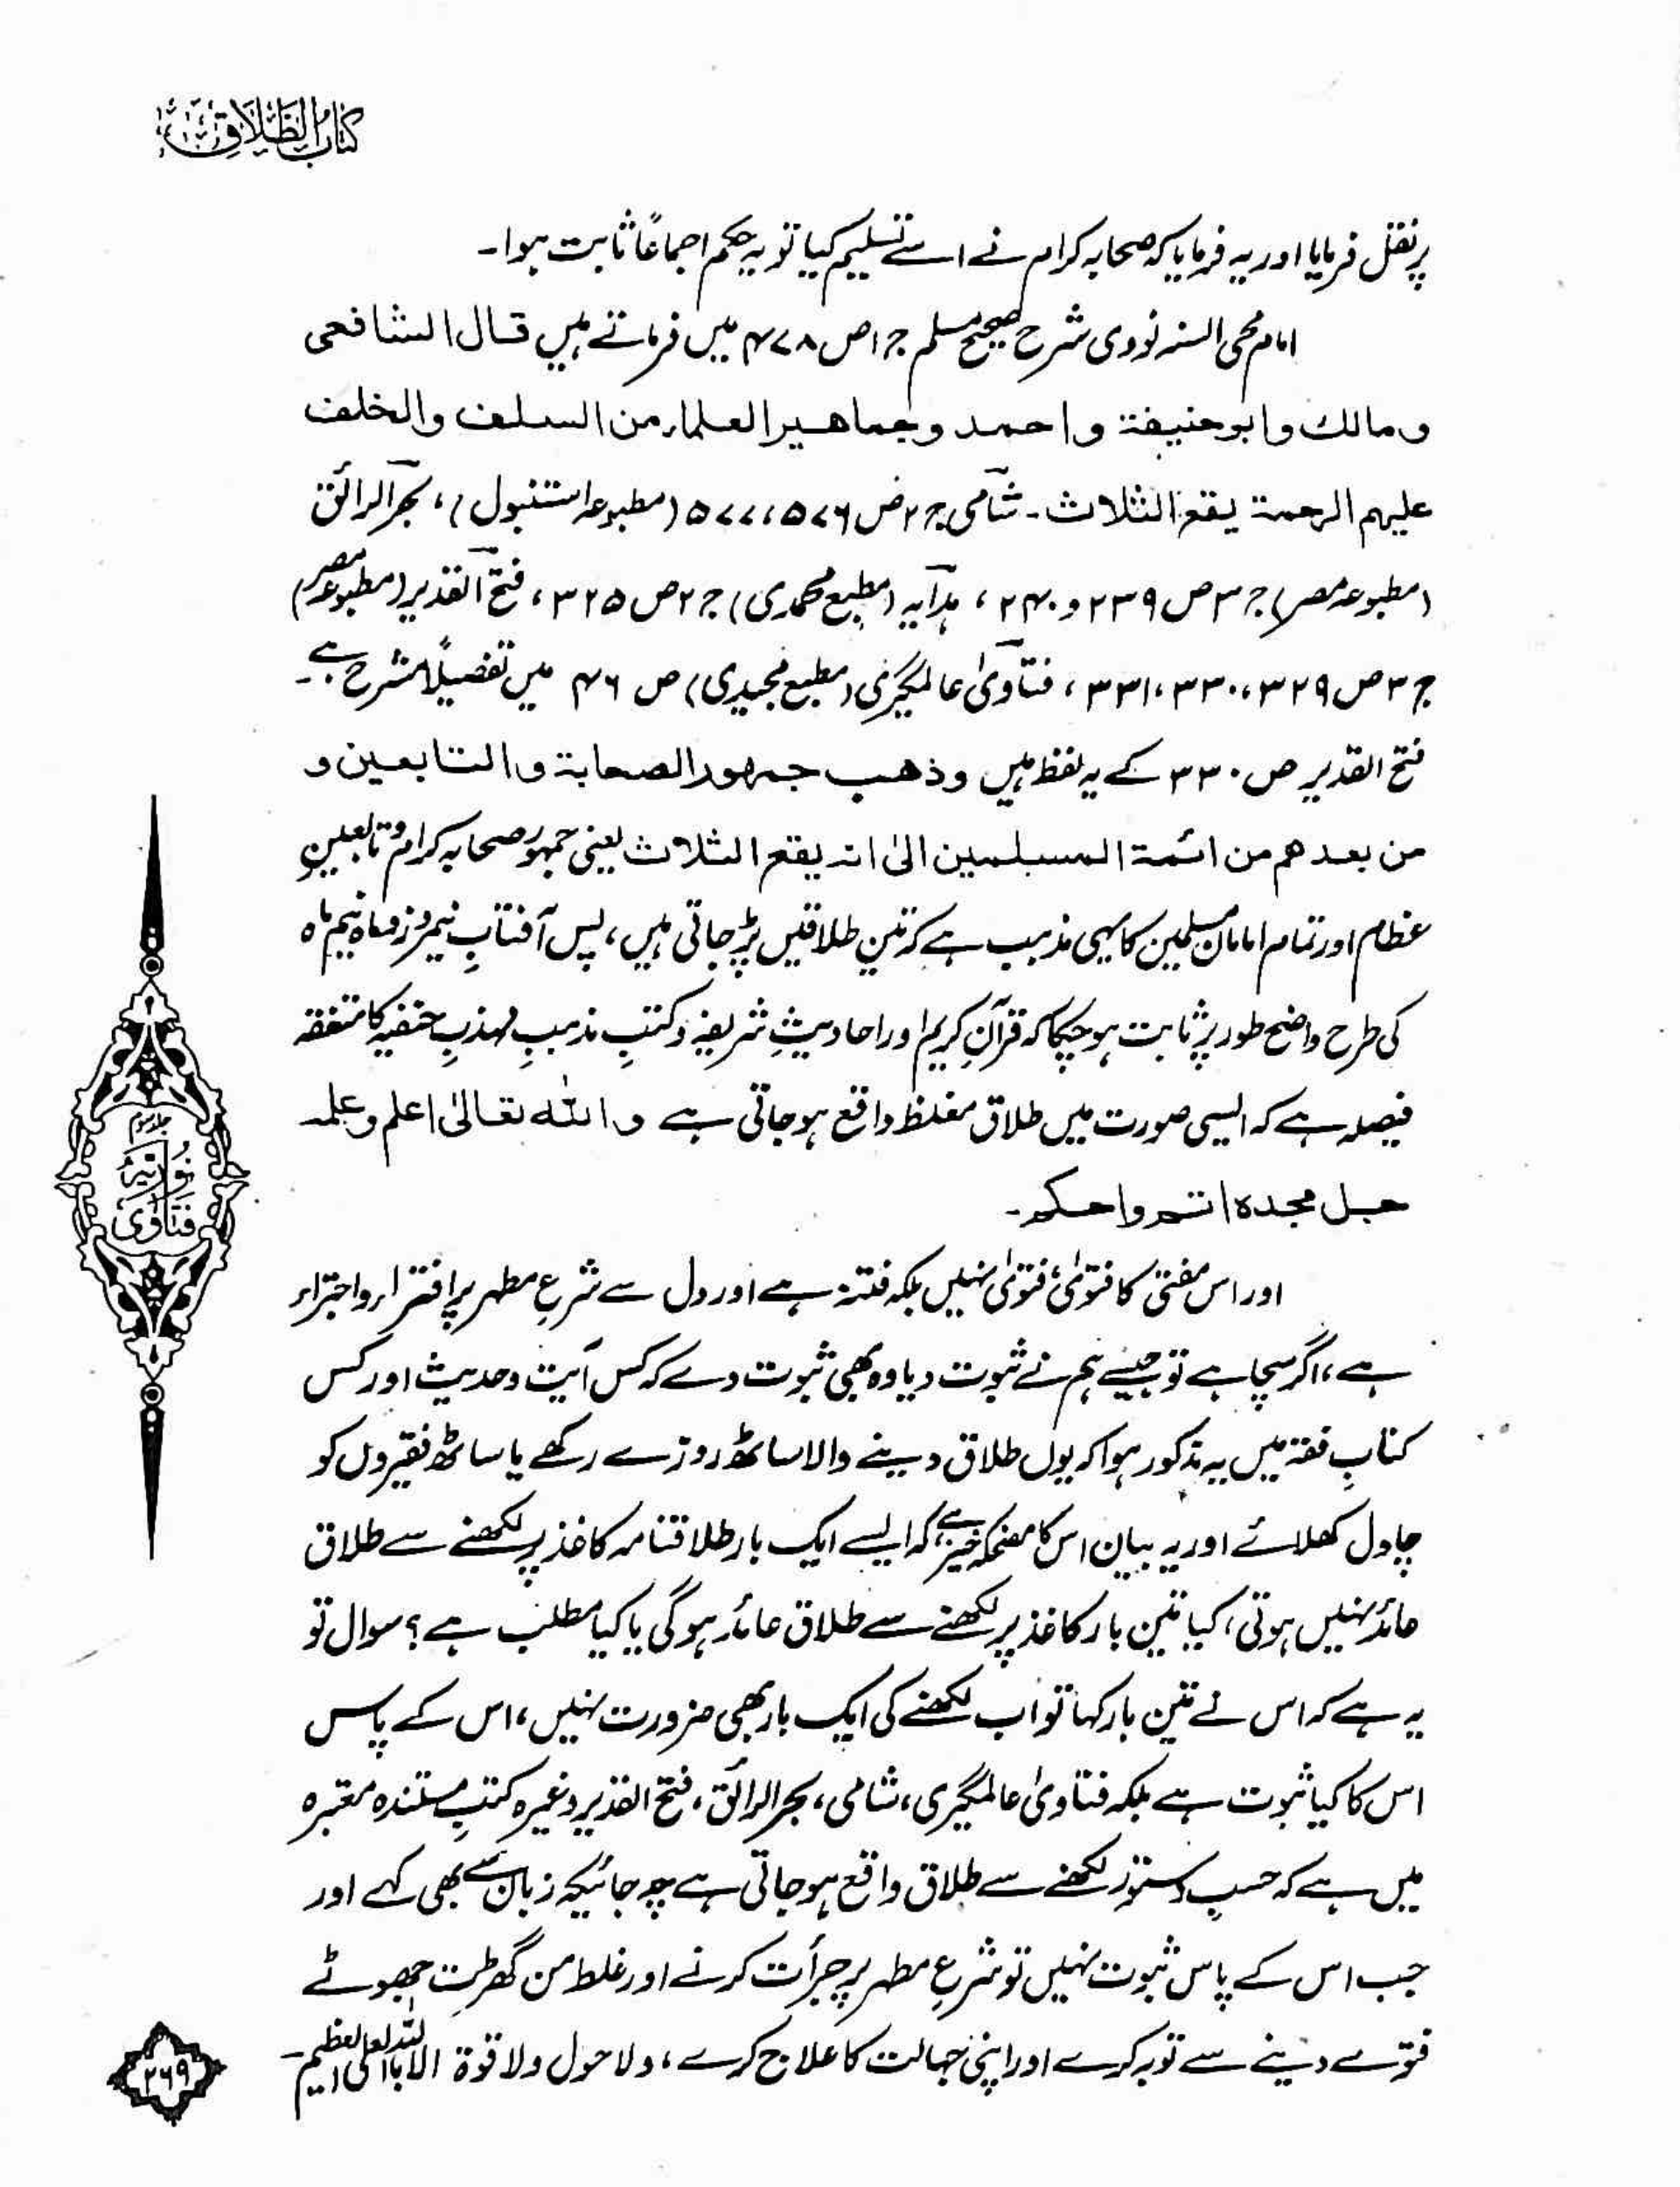 کتاب الطلاق
پر نقل فرمایا اور یہ فرمایا کہ صحابہ کرام نے اسے تسلیم کیا تو یہ حکم اجماعاً ثابت ہوا۔
امام محی السنہ نووی شرح صحیح مسلم ج ۱ ص ۴۷۸ میں فرماتے ہیں قال الشافعی
ومالك وابوحنیفة واحمد وجماهیر العلماء من السلف والخلف
علیهم الرحمة یقع الثلاث۔ شامی ج ۲ ص ۵۷۶، ۵۷۷ (مطبوعہ استنبول)، بحر الرائق
(مطبوعہ مصر) ج ۳ ص ۲۳۹ و ۲۴۰، ہدایہ (مطبع محمدی) ج ۲ ص ۳۲۵، فتح القدیر (مطبوعہ مصر)
ج ۳ ص ۳۲۹، ۳۳۰، ۳۳۱، فتاویٰ عالمگیری (مطبع مجیدی) ص ۴۶ میں تفصیلاً مشرح ہے۔
فتح القدیر ص ۳۳۰ کے یہ لفظ ہیں وذهب جمهور الصحابة والتابعین و
من بعدهم من ائمة المسلمین الیٰ انه یقع الثلاث یعنی جمہور صحابہ کرام و تابعین
عظام اور تمام امامان مسلمین کا یہی مذہب ہے کہ تین طلاقیں پڑ جاتی ہیں، پس آفتابِ نیمروز و ماہ نیم ماہ
کی طرح واضح طور پر ثابت ہو چکا کہ قرآنِ کریم اور احادیثِ شریفہ و کتبِ مذہبِ مہذبِ حنفیہ کا متفقہ
فیصلہ ہے کہ ایسی صورت میں طلاق مغلظ واقع ہو جاتی ہے والله تعالیٰ اعلم وعلمه
جل مجده اتم واحكم۔
اور اس مفتی کا فتویٰ، فتویٰ نہیں بلکہ فتنہ ہے اور دل سے شرعِ مطہر پر افتراء و اجتراء
ہے، اگر سچا ہے تو جیسے ہم نے ثبوت دیا وہ بھی ثبوت دے کہ کس آیت و حدیث اور کس
کتابِ فقہ میں یہ مذکور ہوا کہ یوں طلاق دینے والا ساٹھ روزے رکھے یا ساٹھ فقیروں کو
چاول کھلائے اور یہ بیان اس کا مضحکہ خیز ہے کہ ایسے ایک بار طلاقنامہ کاغذ پر لکھنے سے طلاق
عائد نہیں ہوتی، کیا تین بار کاغذ پر لکھنے سے طلاق عائد ہوگی یا کیا مطلب ہے؟ سوال تو
یہ ہے کہ اس نے تین بار کہا تو اب لکھنے کی ایک بار بھی ضرورت نہیں، اس کے پاس
اس کا کیا ثبوت ہے بلکہ فتاویٰ عالمگیری، شامی، بحر الرائق، فتح القدیر وغیرہ کتبِ مستندہ معتبرہ
میں ہے کہ حسبِ دستور لکھنے سے طلاق واقع ہو جاتی ہے چہ جائیکہ زبان سے بھی کہے اور
جب اس کے پاس ثبوت نہیں تو شرعِ مطہر پر جرأت کرنے اور غلط من گھڑت جھوٹے
فتوے دینے سے توبہ کرے اور اپنی جہالت کا علاج کرے، ولا حول ولا قوة الا بالله العلی العظیم۔
نوریہ
فتاویٰ
۲۶۹